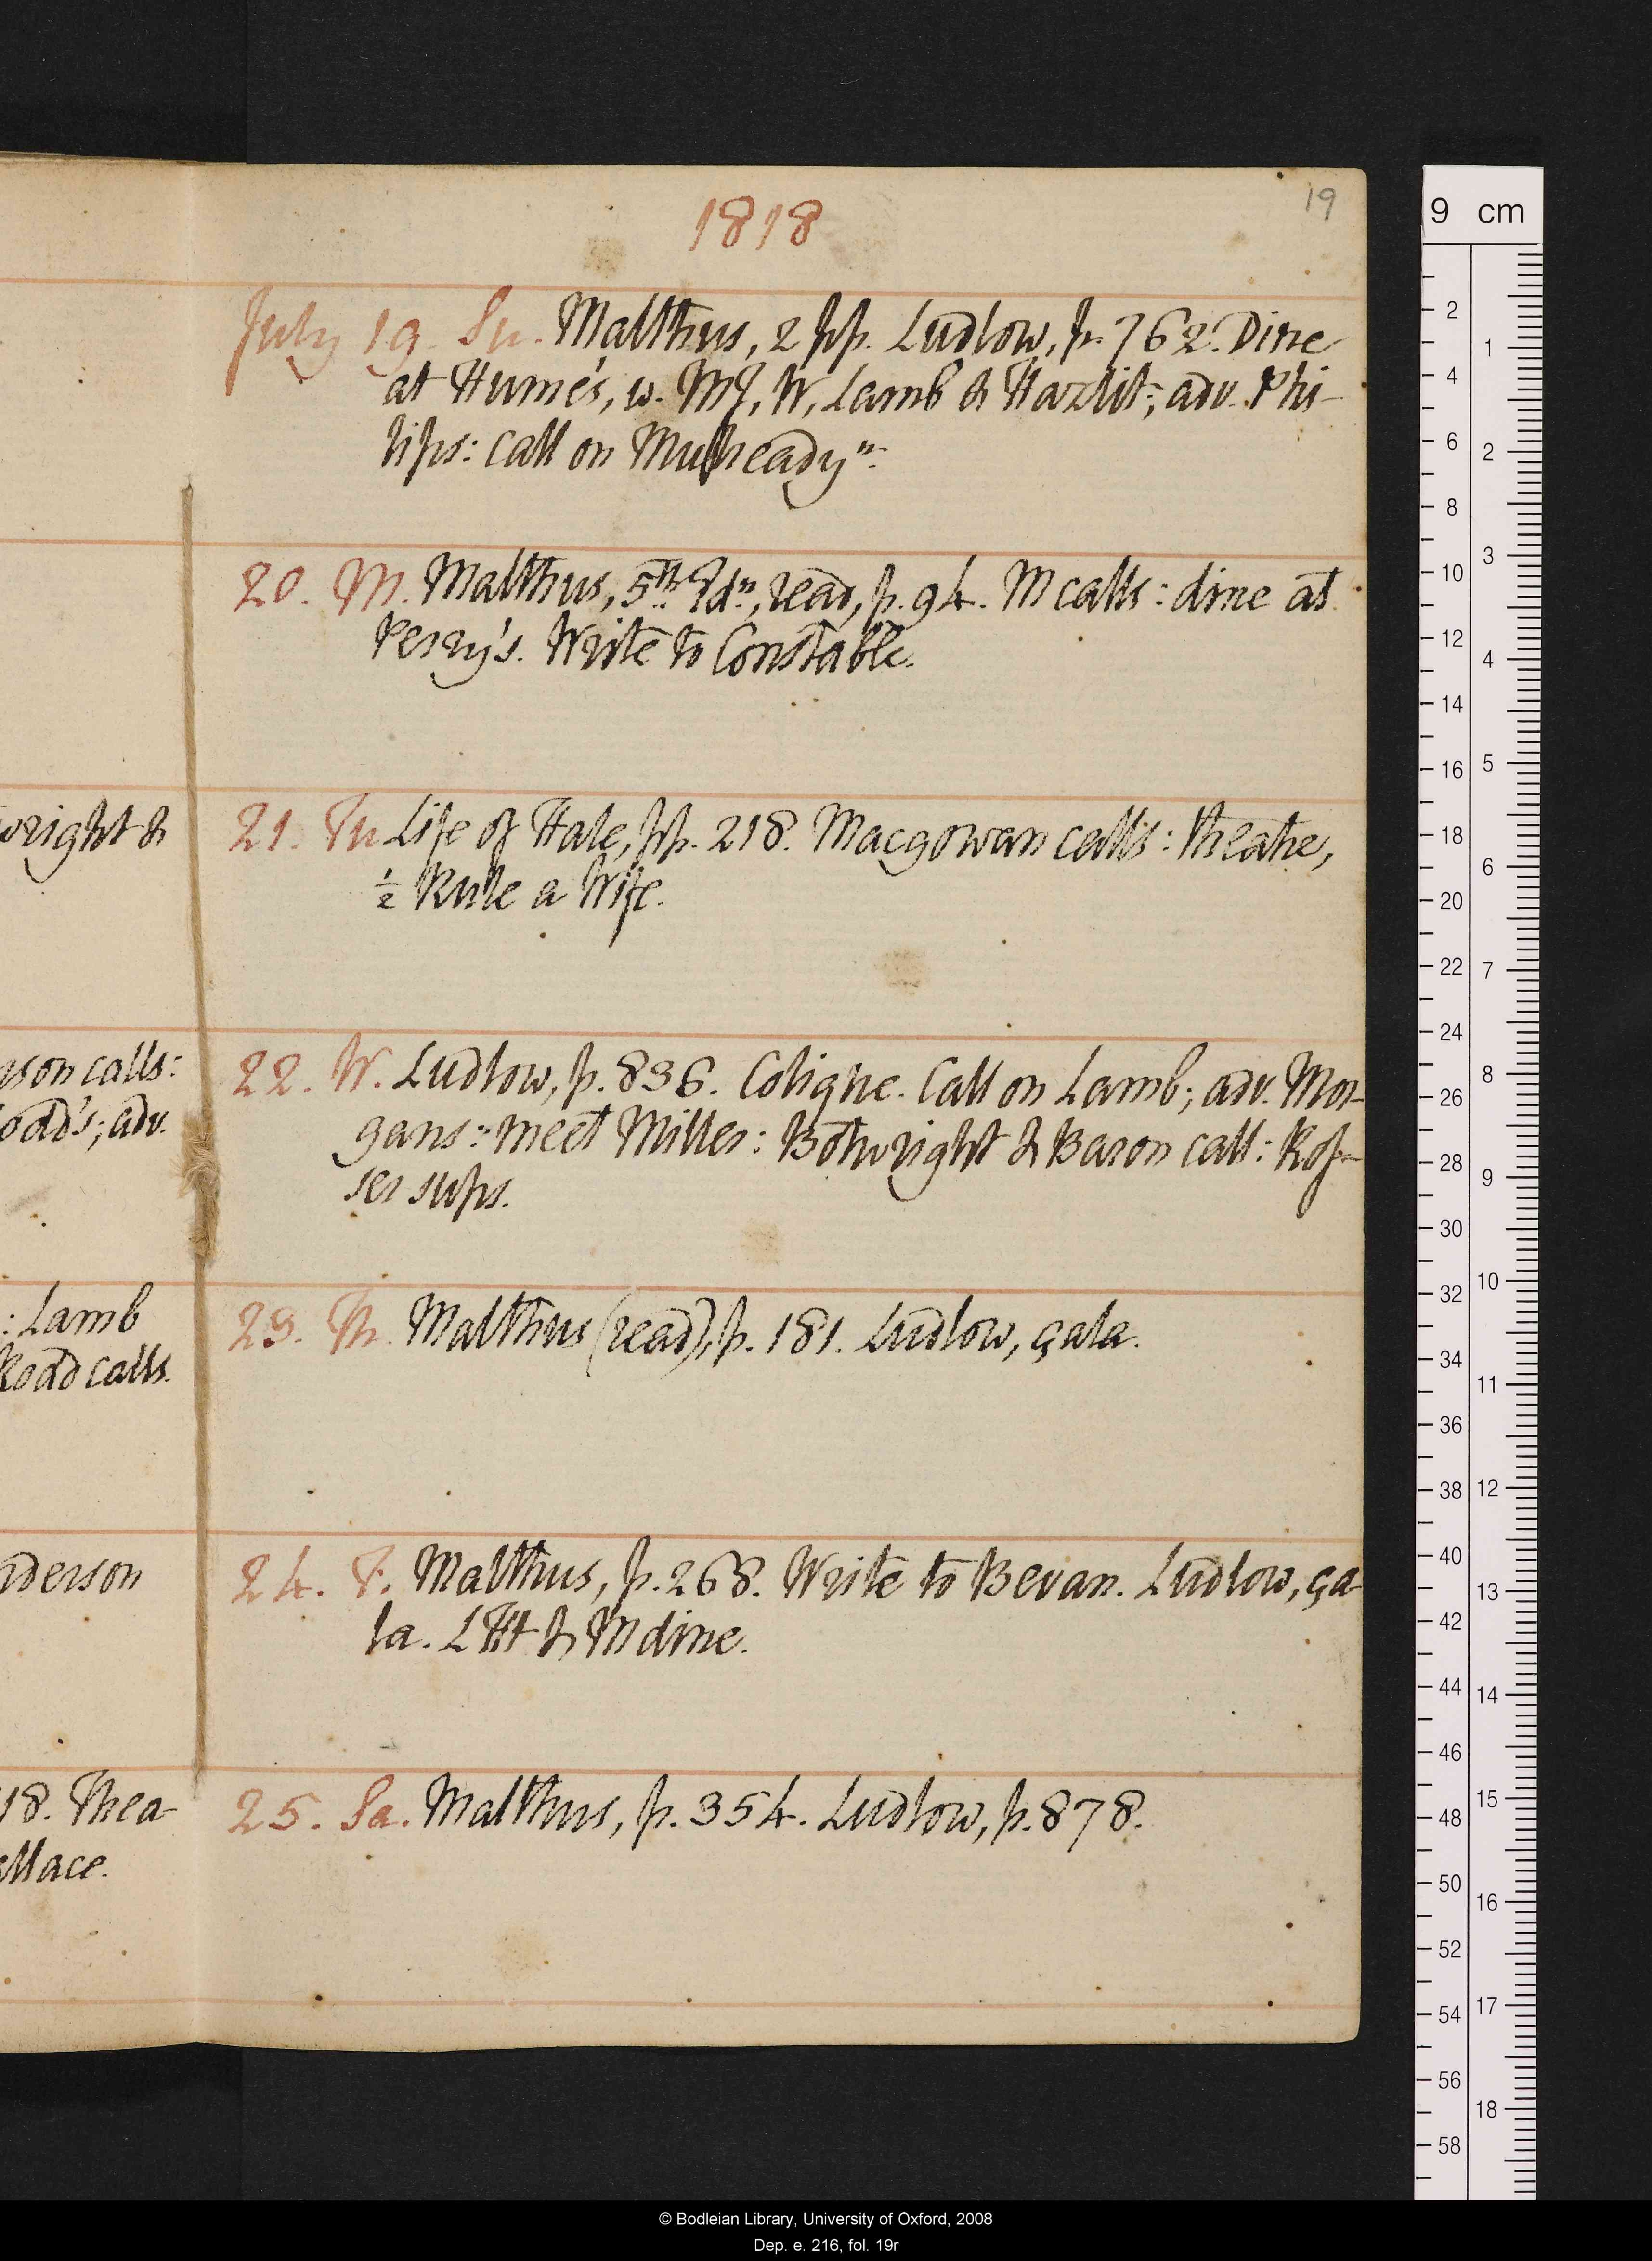 19
1818
July 19. Su. Malthus, 2 pp. Ludlow, p. 762. Dine
at Hume's, w. MJ, W, Lamb & Hazlit; adv. Phi-
lips: call on Mulready n.
20. M. Malthus, 5th Edn, read, p. 94. M calls: dine at
Perry's. Write to Constable.
wright &
21. Tu Life of Hale, pp. 218. Macgowan calls: theatre,
½ Rule a Wife.
son calls:
odd's; adv.
22. W. Ludlow, p. 836. Coligne. Call on Lamb; adv. Mor-
gans: meet Miller: Botwright & Baron call: Ros-
ser sups.
: Lamb
Rodd calls.
23. Th. Malthus (read), p. 181. Ludlow, çala.
nderson
24. F. Malthus, p. 268. Write to Bevan. Ludlow, ça-
la. LHt & M dine.
18. Thea-
allace.
25. Sa. Malthus, p. 354. Ludlow, p. 878.
9 cm
2
4
6
8
10
12
14
16
18
20
22
24
26
28
30
32
34
36
38
40
42
44
46
48
50
52
54
56
58
1
2
3
4
5
6
7
8
9
10
11
12
13
14
15
16
17
18
© Bodleian Library, University of Oxford, 2008
Dep. e. 216, fol. 19r